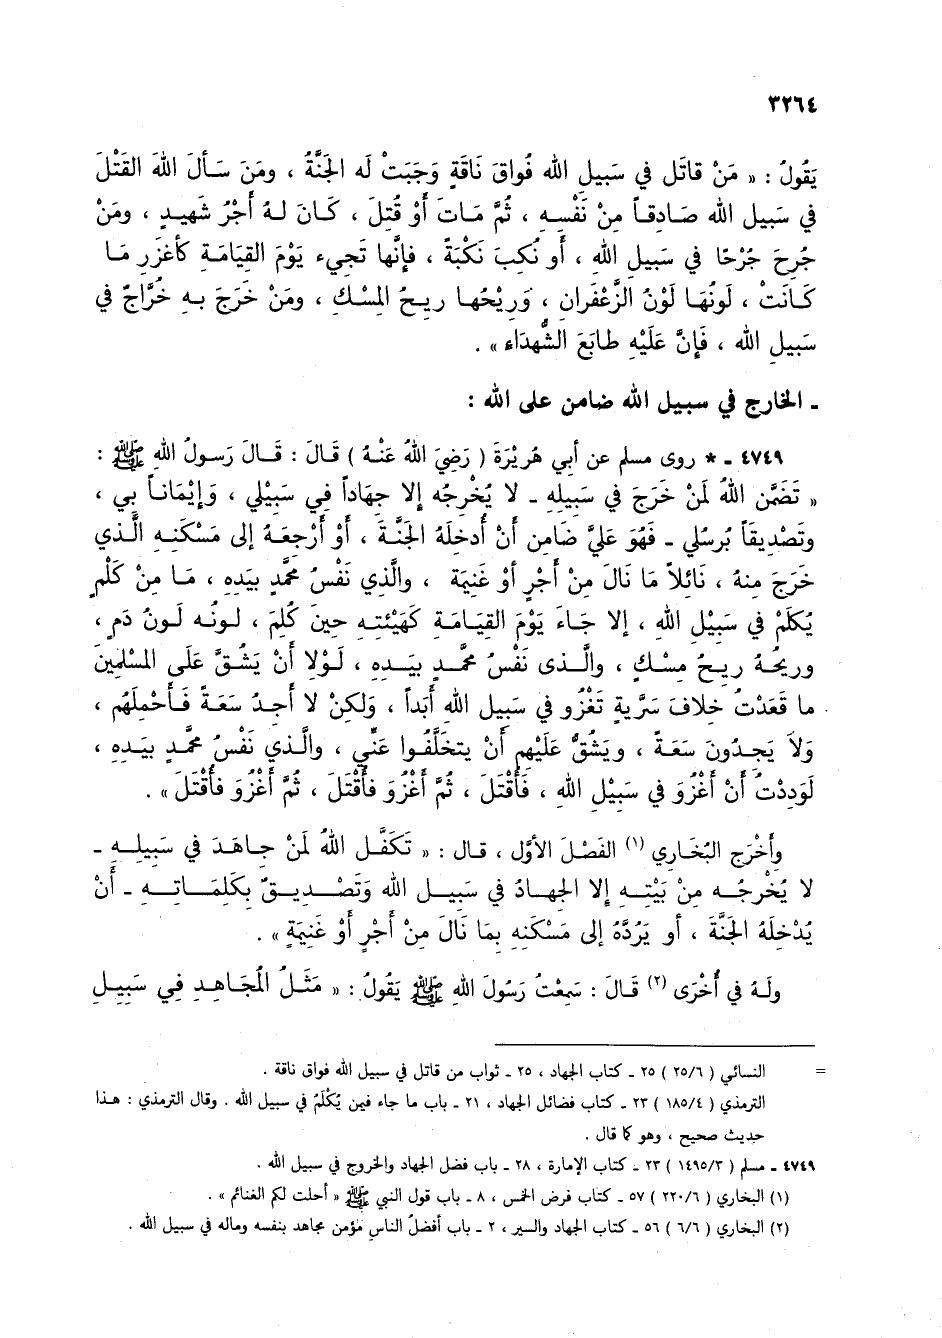 ٣٢٦٤
يَقُولُ : « مَنْ قاتَل في سَبيل الله فُواقَ نَاقَةٍ وَجَبَتْ لَه الجَنَّةُ ، ومَنَ سَـأَلَ اللهَ القَتْلَ
في سَبِيلِ الله صَـادِقـاً مِنْ نَفْسِـهِ ، ثُمَّ مَـاتَ أَوْ قُتِـلَ ، كَـانَ لـهُ أَجْرُ شَهِيـدٍ ، ومَنْ
جُرِحَ جُرْحًا في سَبِيلِ اللهِ ، أو نُكِبَ نَكْبَةً ، فإنَّها تَجيء يَوْمَ القِيَامَـةِ كأغزَرِ مَـا
كَـانَتْ ، لَونُهَا لَوْنُ الزَّعْفَرانِ ، وَرِيْحُهـا رِيـحُ المِسْـكِ ، ومَنْ خَرَجَ بـهِ خُرَّاجٌ في
سَبِيلِ اللهِ ، فَإنَّ عَلَيْهِ طابَعَ الشُّهدَاء » .
ـ الخارج في سبيل الله ضامن على الله :
٤٧٤٩ ـ * روى مسلم عن أبي هُرَيْرَةَ ( رَضِيَ اللهُ عَنْـهُ ) قَـالَ : قَـالَ رَسـولُ اللهِ ﷺ :
« تَضَمَّن اللهُ لَمَنْ خَرَجَ في سَبيلِهِ ـ لا يُخْرِجُه إلا جهَاداً فِي سَبِيْلي ، وَإِيْمَانـاً بي ،
وتَصْدِيقاً بُرسُلي ـ فَهُوَ عَليَّ ضَامِن أنْ أُدخِلَهُ الجَنَّـةَ ، أوْ أُرْجِعَـهُ إلى مَسْكَنِـهِ الَّـذي
خَرَجَ مِنهُ ، نَائلاً مَا نَالَ مِنْ أَجْرٍ أوْ غَنِيَمَة ، والَّذِي نَفْسُ مُحَمَّدٍ بيَدِهِ ، مَـا مِنْ كَلْمٍ
يُكلَمُ في سَبِيْلِ اللهِ ، إلا جَـاءَ يَوْمَ القِيَامَـةِ كَهَيْئَتِـهِ حِينَ كُلِمَ ، لـونُـه لَـونُ دَمٍ ،
وريحُـهُ رِيـحُ مِسْـكٍ ، والَّـذى نَفْسُ مُحَمَّـدٍ بيَـدِهِ ، لَـوْلا أنْ يَشُـقَّ عَلَى المُسْلِمِينَ
ما قَعَدْتُ خِلافَ سَرِّيةٍ تَغْزُو في سَبِيلِ اللهِ أبَداً ، وَلكِنْ لا أجِـدُ سَعَـةً فَـأحْمِلَهُمْ ،
وَلَا يَجِـدُونَ سَعَـةً ، ويَشُقُّ عَلَيْهِم أنْ يتخَلَّفُـوا عَنِّي ، والَّـذي نَفْسُ مُحَمَّدٍ بيَـدِهِ ،
لَوَدِدْتُ أنْ أغْزُوَ في سَبِيْلِ اللهِ ، فَأُقْتَلَ ، ثُمَّ أَغْزُوَ فَأُقْتَلَ ، ثُمَّ أَغْزُوَ فأُقْتَلَ » .
وأخْرَج البُخَاري (١) الفَصْلَ الأوَّل ، قـال : « تَكَفَّـل اللهُ لَمنْ جـاهَـدَ في سَبِيلِـهِ ـ
لا يُخْرِجُـه مِنْ بَيْتِـهِ إلا الجِهـادُ في سَبيـل اللهِ وَتَصْـدِيـقٌ بكَلِمَـاتِـهِ ـ أنْ
يُـدْخِلَهُ الجَنَّةَ ، أو يَرُدَّهُ إلى مَسْكَنِهِ بمَا نَالَ مِنْ أَجْرٍ أوْ غَنِيَمةٍ » .
ولَهُ في أُخْرَى (٢) قَـالَ : سَمِعْتُ رَسُولَ اللهِ ﷺ يَقُولُ : « مَثَـلُ المُجَـاهِدِ فِي سَبِيـلِ
= النسائي ( ٢٥/٦ ) ٢٥ ـ كتاب الجهاد ، ٢٥ ـ ثواب من قاتل في سبيل الله فواق ناقة .
الترمذي ( ١٨٥/٤ ) ٢٣ ـ كتاب فضائل الجهاد ، ٢١ ـ باب ما جاء فيمن يُكْلَمُ في سبيل الله . وقال الترمذي : هـذا
حديث صحيح ، وهو كما قال .
٤٧٤٩ ـ مسلم ( ١٤٩٥/٣ ) ٣٣ ـ كتاب الإمارة ، ٢٨ ـ باب فضل الجهاد والخروج في سبيل الله .
(١) البخاري ( ٢٢٠/٦ ) ٥٧ ـ كتاب فرض الخمس ، ٨ ـ باب قول النبي ﷺ « أحلت لكم الغنائم » .
(٢) البخاري ( ٦/٦ ) ٥٦ ـ كتاب الجهاد والسير ، ٢ ـ باب أفضلُ الناسِ مؤمن مجاهد بنفسه وماله في سبيل الله .